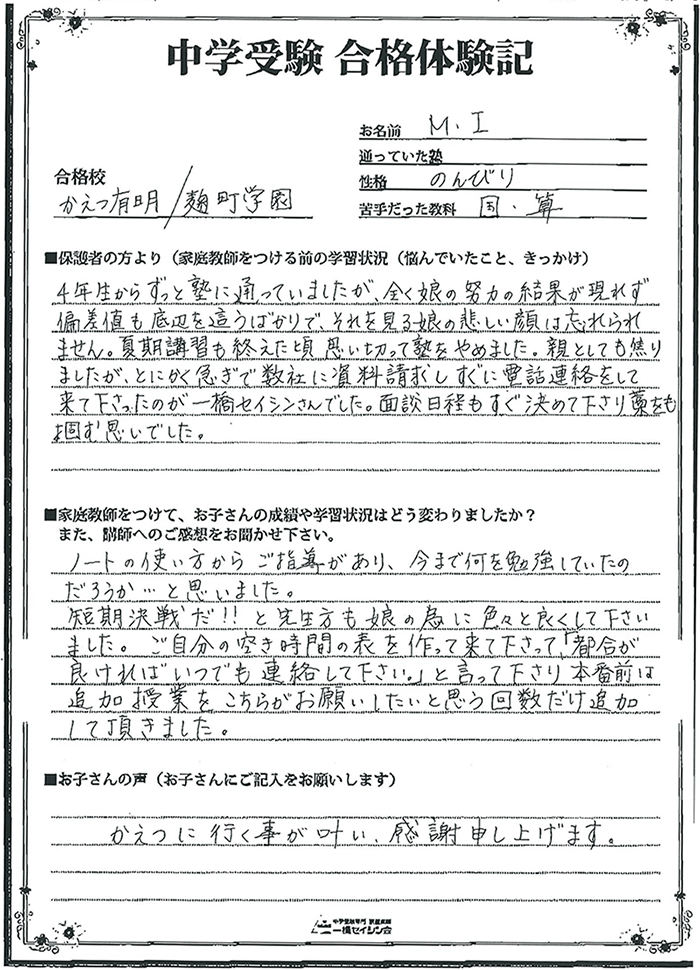 中学受験 合格体験記
お名前 M.I
通っていた塾
合格校
性格 のんびり
かえつ有明/麹町学園
苦手だった教科 国・算
■保護者の方より（家庭教師をつける前の学習状況（悩んでいたこと、きっかけ）
4年生からずっと塾に通っていましたが、全く娘の努力の結果が現れず
偏差値も底辺を這うばかりで、それを見る娘の悲しい顔は忘れられ
ません。夏期講習も終えた頃思い切って塾をやめました。親としても焦り
ましたが、とにかく急ぎで数社に資料請求しすぐに電話連絡をして
来て下さったのが一橋セイシンさんでした。面談日程もすぐ決めて下さり藁をも
掴む思いでした。
■家庭教師をつけて、お子さんの成績や学習状況はどう変わりましたか？
また、講師へのご感想をお聞かせ下さい。
ノートの使い方からご指導があり、今まで何を勉強していたの
だろうか…と思いました。
短期決戦だ!!と先生方も娘の為に色々と良くして下さい
ました。ご自分の空き時間の表を作って来て下さって、「都合が
良ければいつでも連絡して下さい。」と言って下さり本番前は
追加授業をこちらがお願いしたいと思う回数だけ追加
して頂きました。
■お子さんの声（お子さんにご記入をお願いします）
かえつに行く事が叶い、感謝申し上げます。
中学受験専門 家庭教師
一橋セイシン会